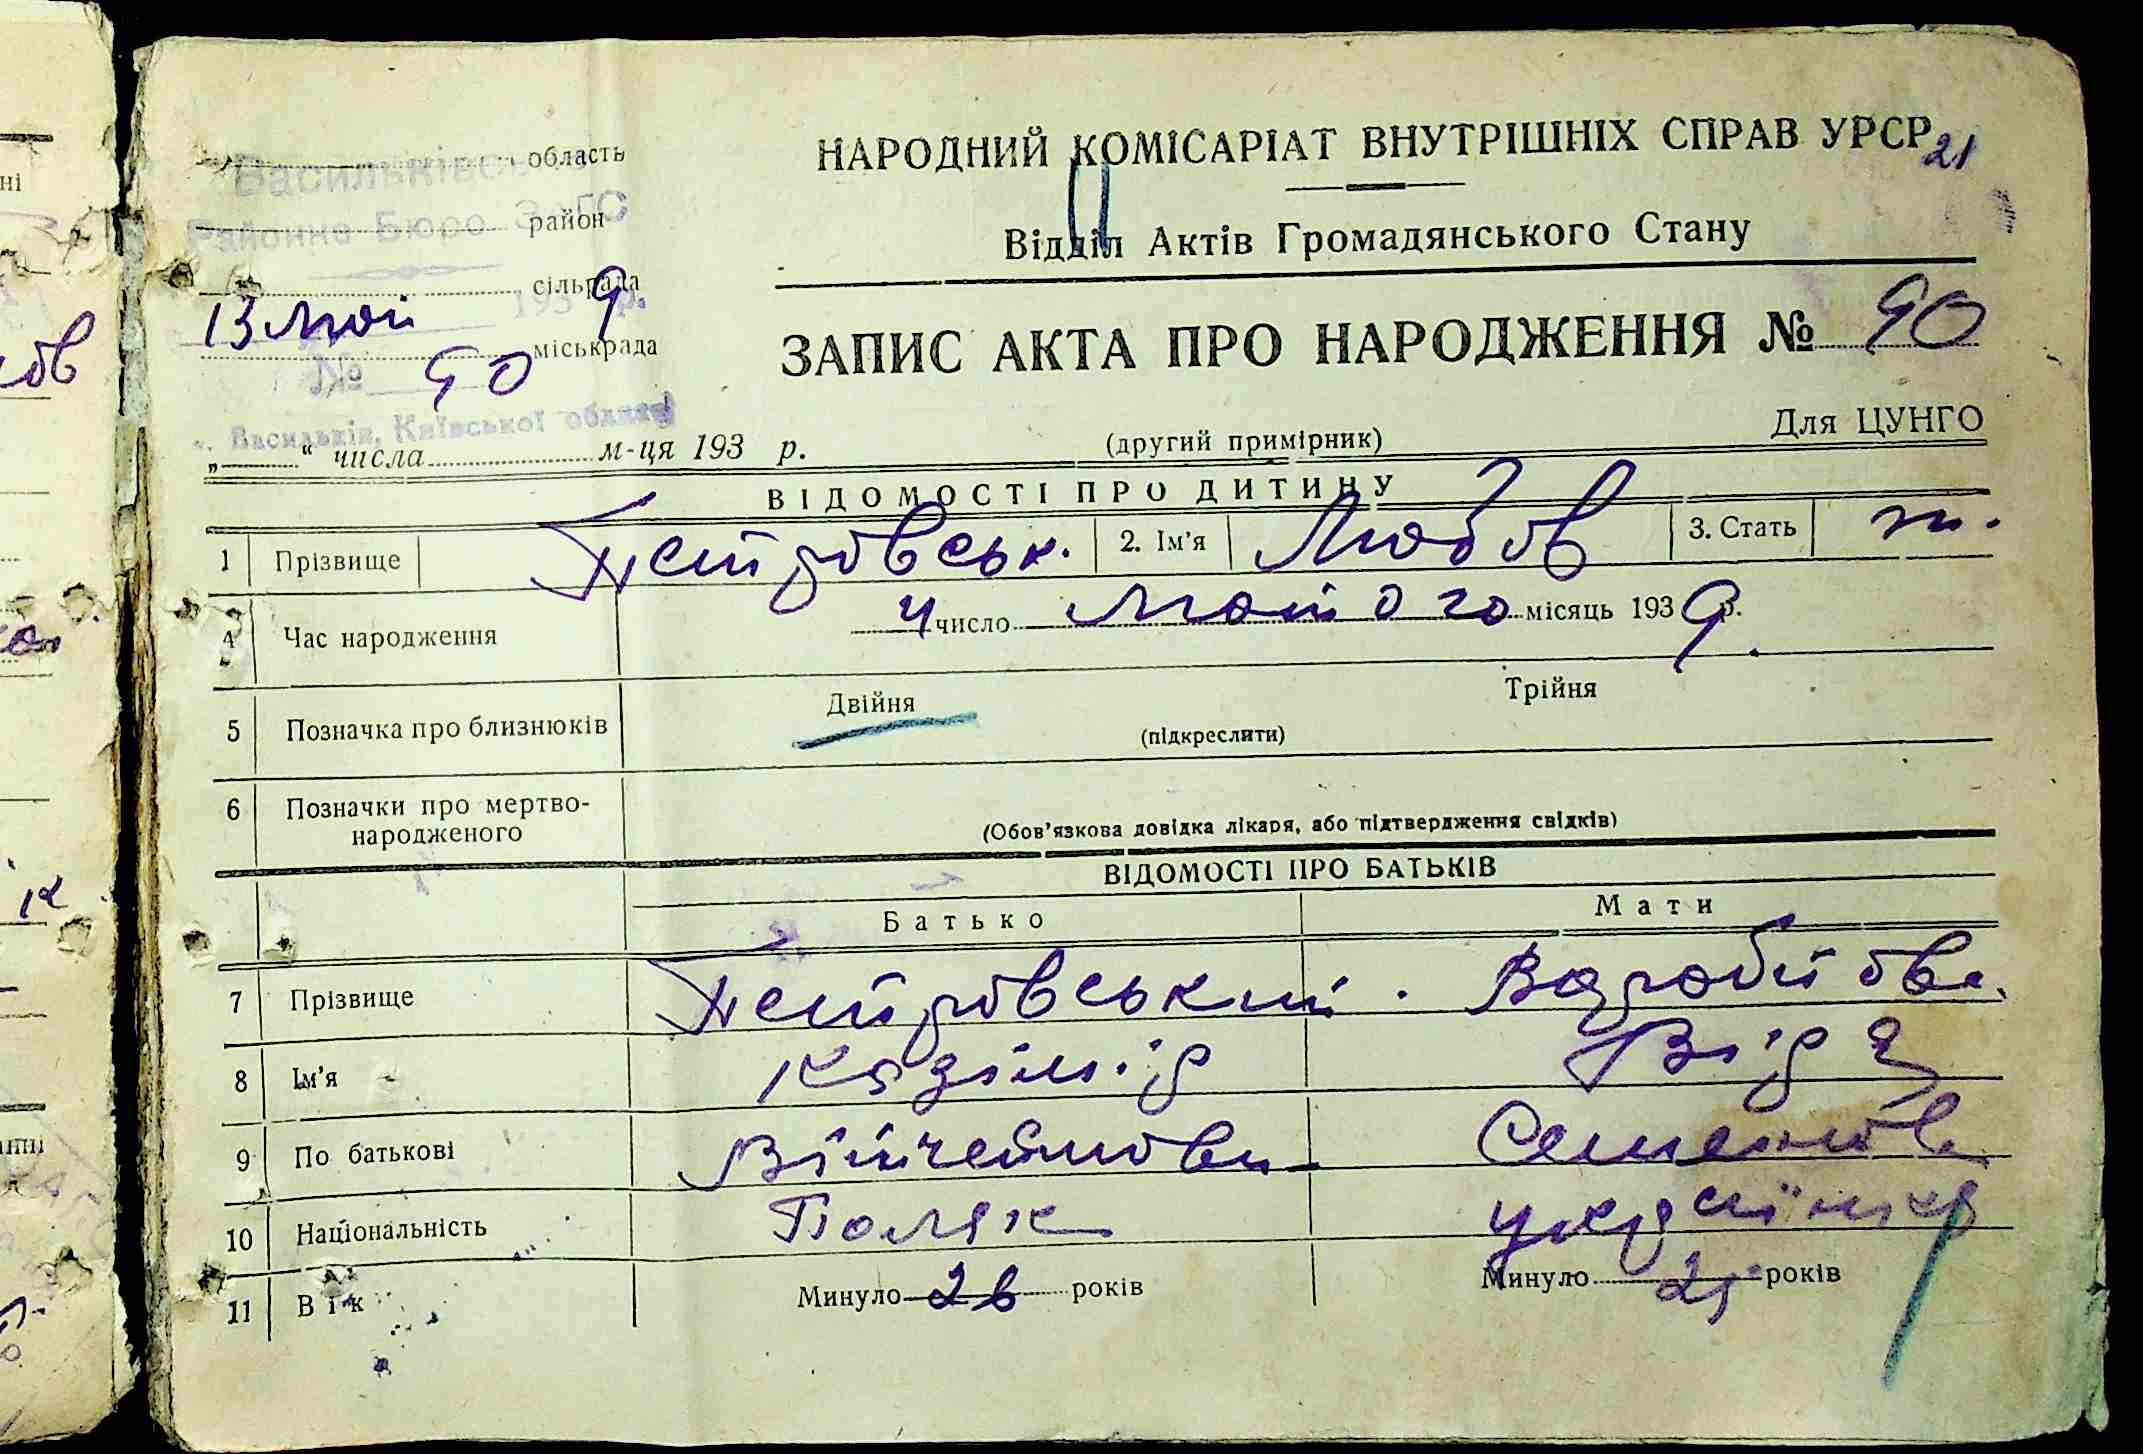 НАРОДНИЙ КОМІСАРІАТ ВНУТРІШНІХ СПРАВ УРСР
21
Відділ Актів Громадянського Стану
область
Васильківське
район
Районне Бюро ЗАГС
сільрада
13 мая 1939 р.
міськрада
№ 90
м. Васильків, Київської області
„ “ числа м-ця 193 р.
ЗАПИС АКТА ПРО НАРОДЖЕННЯ № 90
(другий примірник)
Для ЦУНГО
ВІДОМОСТІ ПРО ДИТИНУ
1 Прізвище Петровськ. 2. Ім'я Любов 3. Стать ж.
4 Час народження 4 число місяць 1939 р.
5 Позначка про близнюків Двійня Трійня
(підкреслити)
6 Позначки про мертво-
народженого
(Обов'язкова довідка лікаря, або підтвердження свідків)
ВІДОМОСТІ ПРО БАТЬКІВ
Батько Мати
7 Прізвище Петровський.
8 Ім'я Казімір Віра
9 По батькові Семенов
10 Національність Поляк українка
11 Вік Минуло 26 років Минуло років